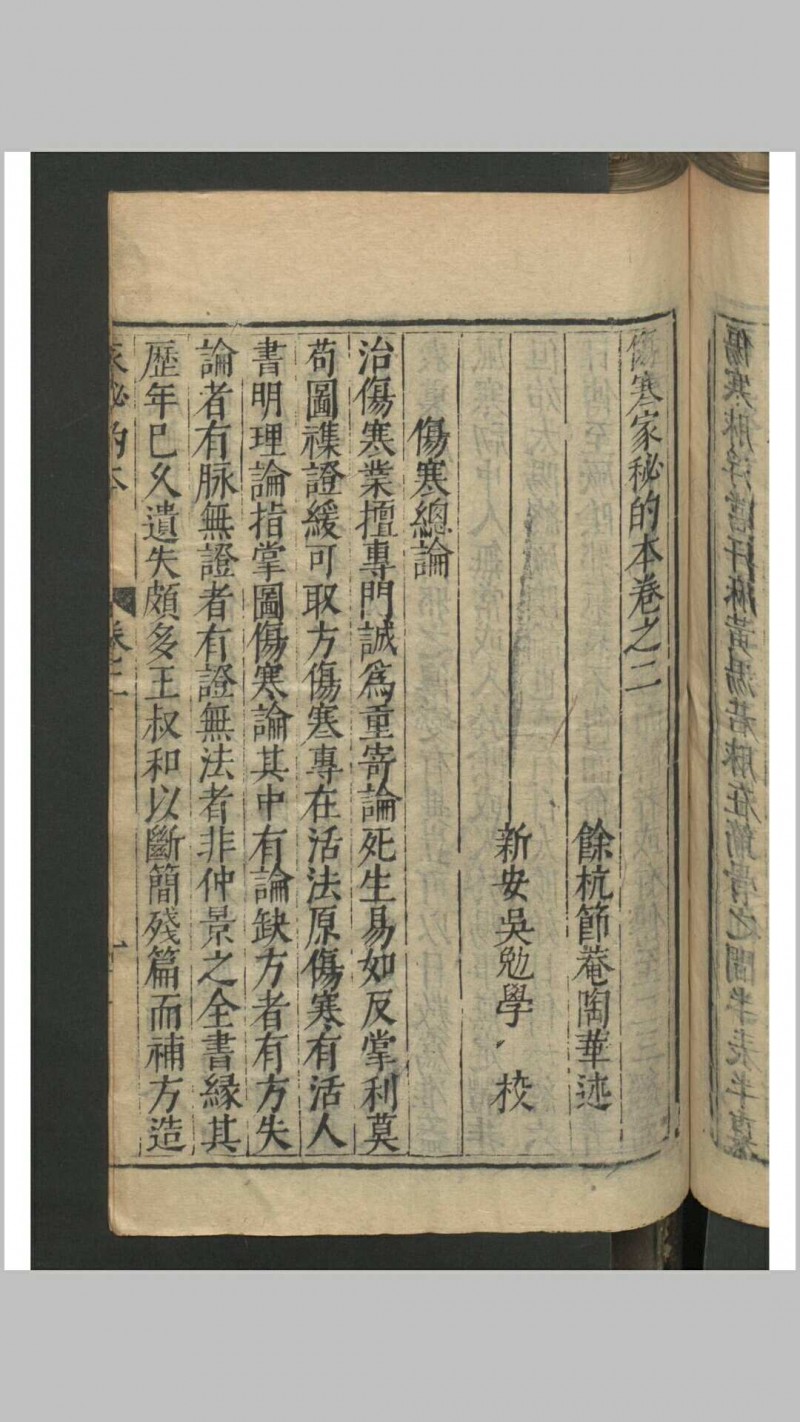 傷寒家秘的本卷之二
餘杭節菴陶華述
新安吳勉學 校
傷寒總論
治傷寒業擅專門誠爲重寄論死生易如反掌利莫
苟圖襍證緩可取方傷寒專在活法原傷寒有活人
書明理論指掌圖傷寒論其中有論缺方者有方失
論者有脉無證者有證無法者非仲景之全書緣其
歷年已久遺失頗多王叔和以斷簡殘篇而補方造
家秘的本 卷之二 一